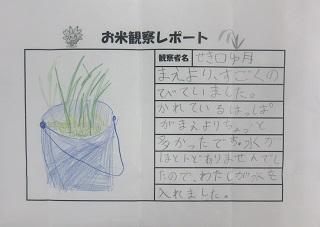 お米観察レポート
観察者名 せき口ゆ月
まえより、すごくの
びていました。
かれているはっぱ
がまえよりちょっと
多かったです。水が
ほとんどありませんでし
たので、わたしが水を
入れました。